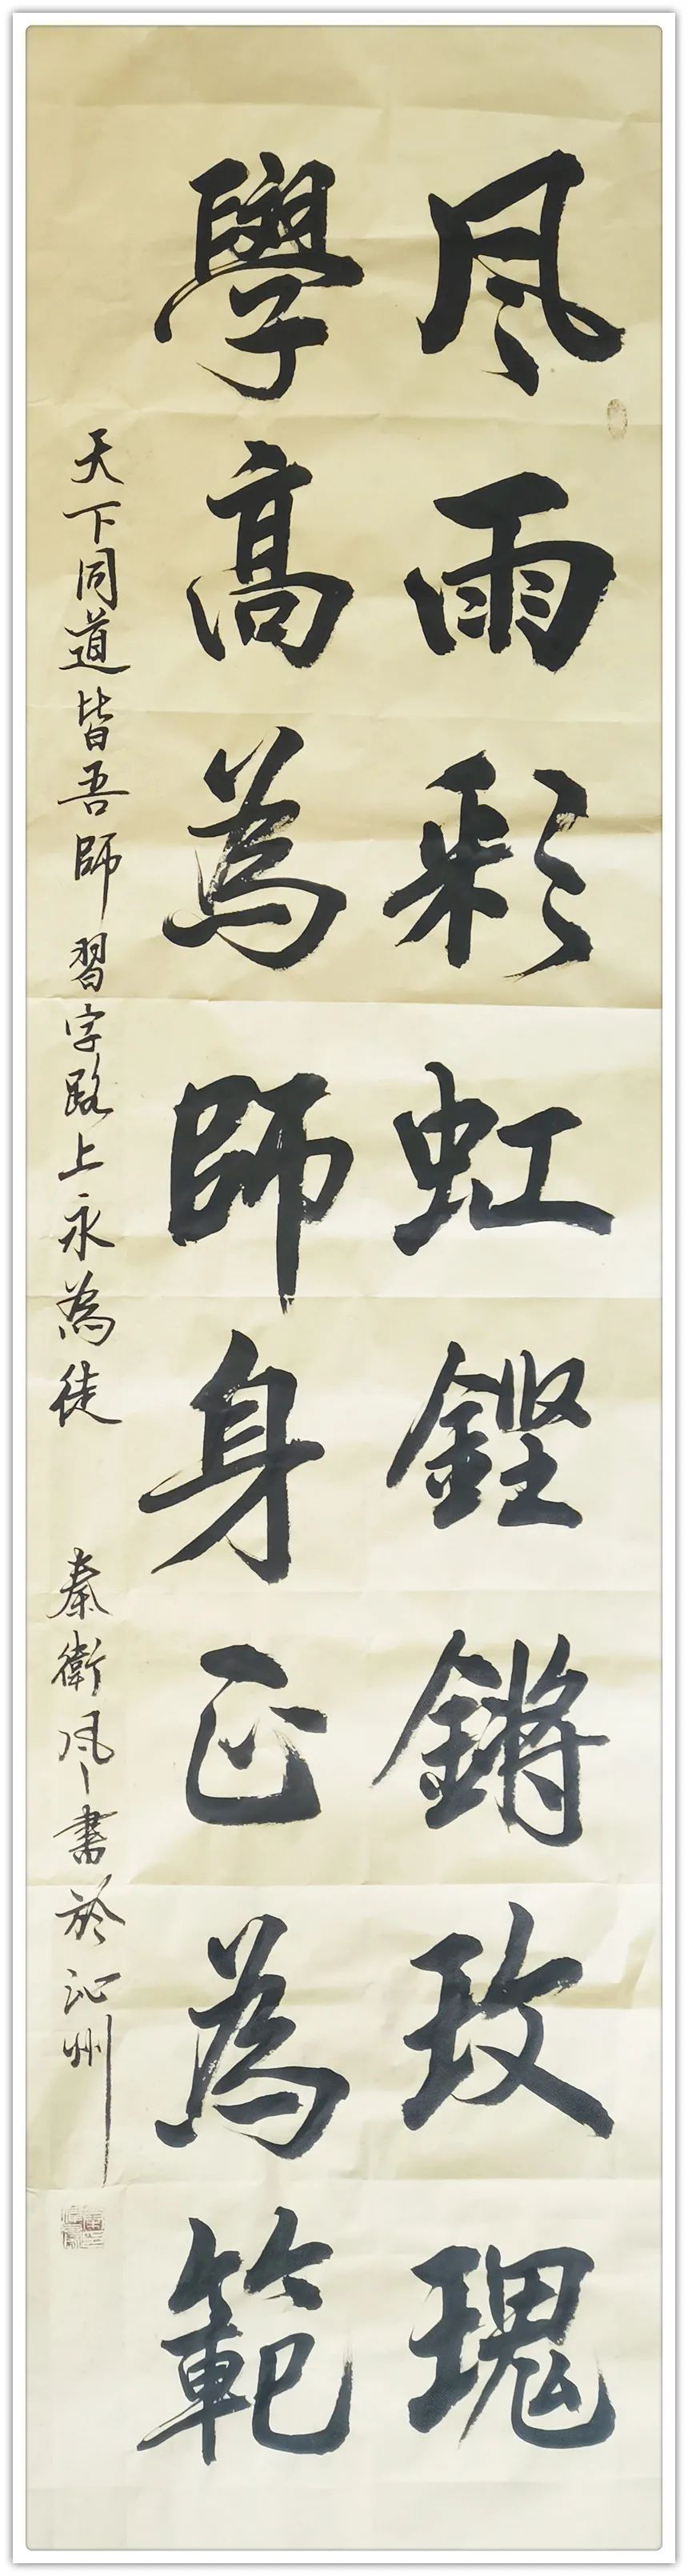 风雨彩虹鏗鏘玫瑰
學高為師身正為範
天下同道皆吾師習字路上永為徒 秦衛風書於沁州